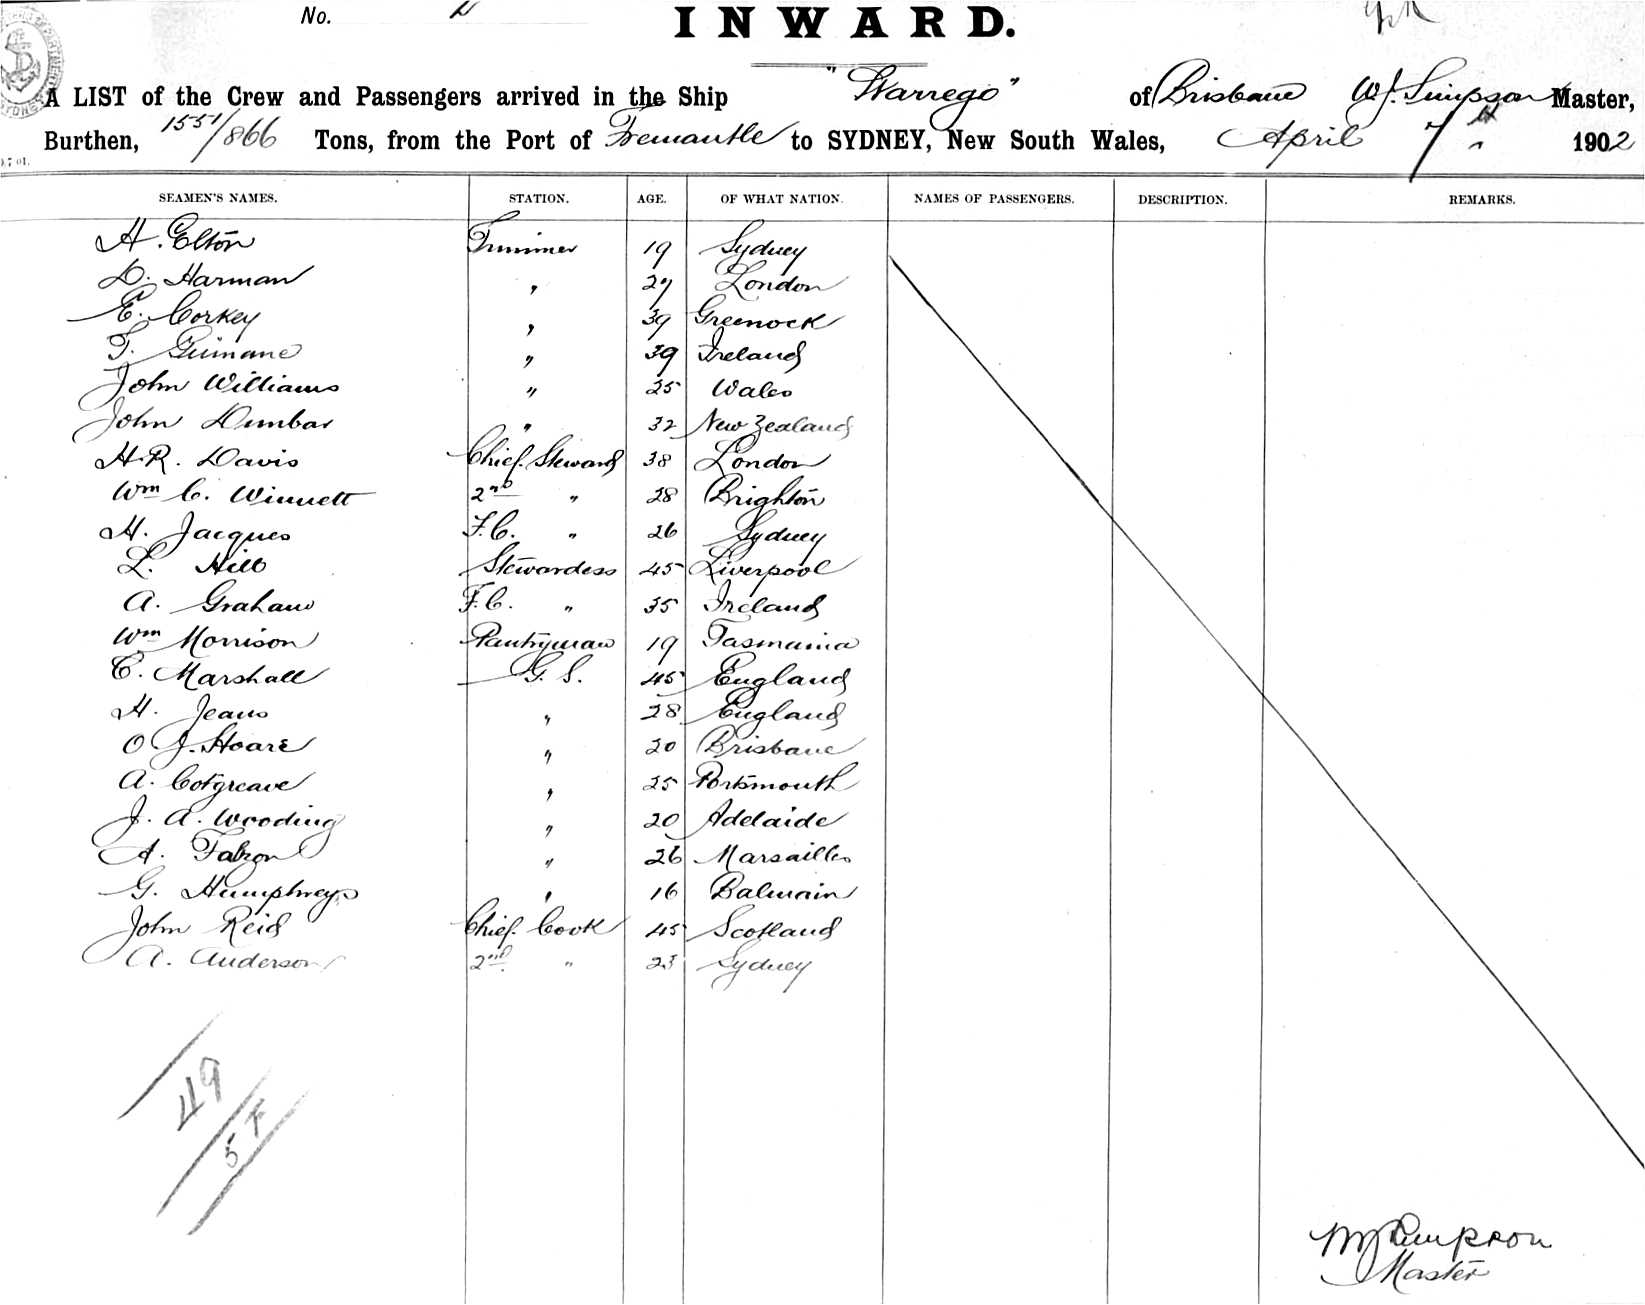 No.
INWARD.
A LIST of the Crew and Passengers arrived in the Ship "Warrego" of Brisbane W. J. Simpson Master,
Burthen, 1551/866 Tons, from the Port of Fremantle to SYDNEY, New South Wales, April 7th 1902
SEAMEN'S NAMES. STATION. AGE. OF WHAT NATION. NAMES OF PASSENGERS. DESCRIPTION. REMARKS.
H. Elton Trimmer 19 Sydney
D. Harman " 27 London
E. Corkey " 39 Greenock
T. " 39 Ireland
John Williams " 25 Wales
John Dunbar " 32 New Zealand
H. R. Davis Chief Steward 38 London
Wm C. Winnett 2nd " 28 Brighton
H. Jacques F.C. " 26 Sydney
L. Hill Stewardess 45 Liverpool
A. Graham F.C. " 35 Ireland
Wm Morrison Pantryman 19 Tasmania
C. Marshall G.S. 45 England
H. Jeans " 28 England
O J. Hoare " 20 Brisbane
A. Cotgreave " 25 Portsmouth
J. A. Wooding " 20 Adelaide
A. Falzon " 26 Marsailles
G. Humphreys " 16 Balmain
John Reid Chief Cook 45 Scotland
A. Anderson 2nd " 23 Sydney
49
5 F
W J Simpson
Master